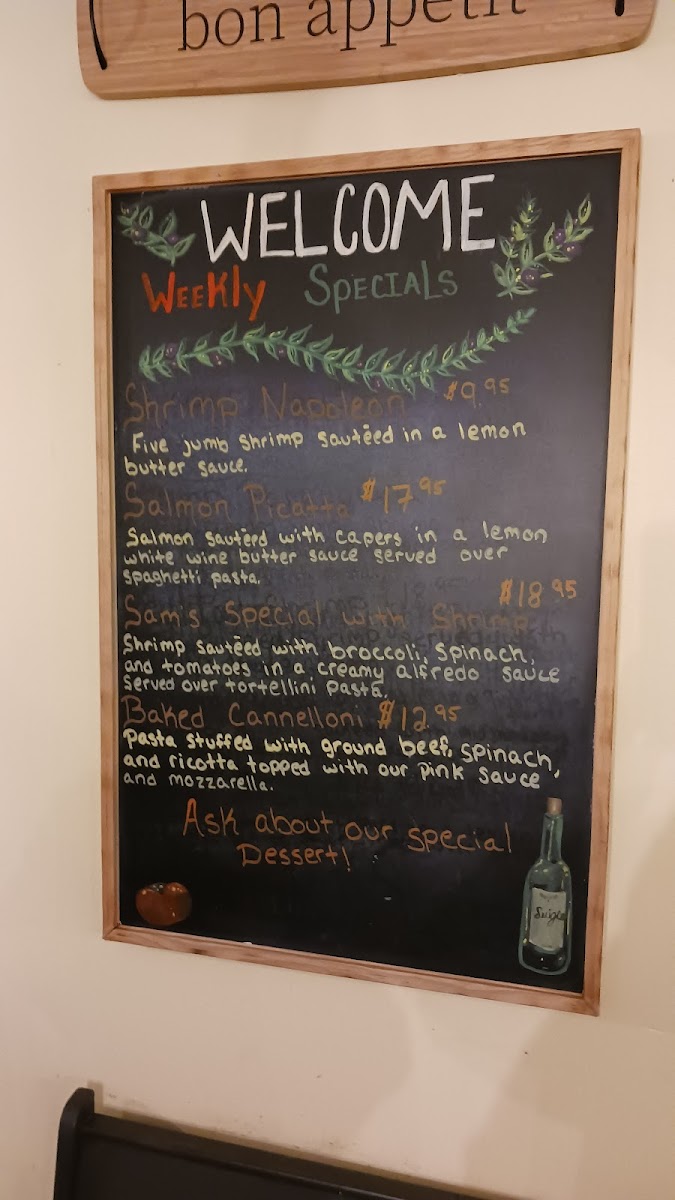 bon appetit
WELCOME
WEEKly SPECIALS
Shrimp Napoleon $9.95
Five jumb shrimp sautēed in a lemon
butter sauce.
Salmon Picatta $17.95
Salmon sautēed with capers in a lemon
white wine butter sauce served over
spaghetti pasta.
$18.95
Sam's Special with Shrimp
Shrimp sautēed with broccoli, spinach,
and tomatoes in a creamy alfredo sauce
served over tortellini pasta.
Baked Cannelloni $12.95
Pasta stuffed with ground beef, spinach,
and ricotta topped with our pink sauce
and mozzarella.
Ask about our special
Dessert!